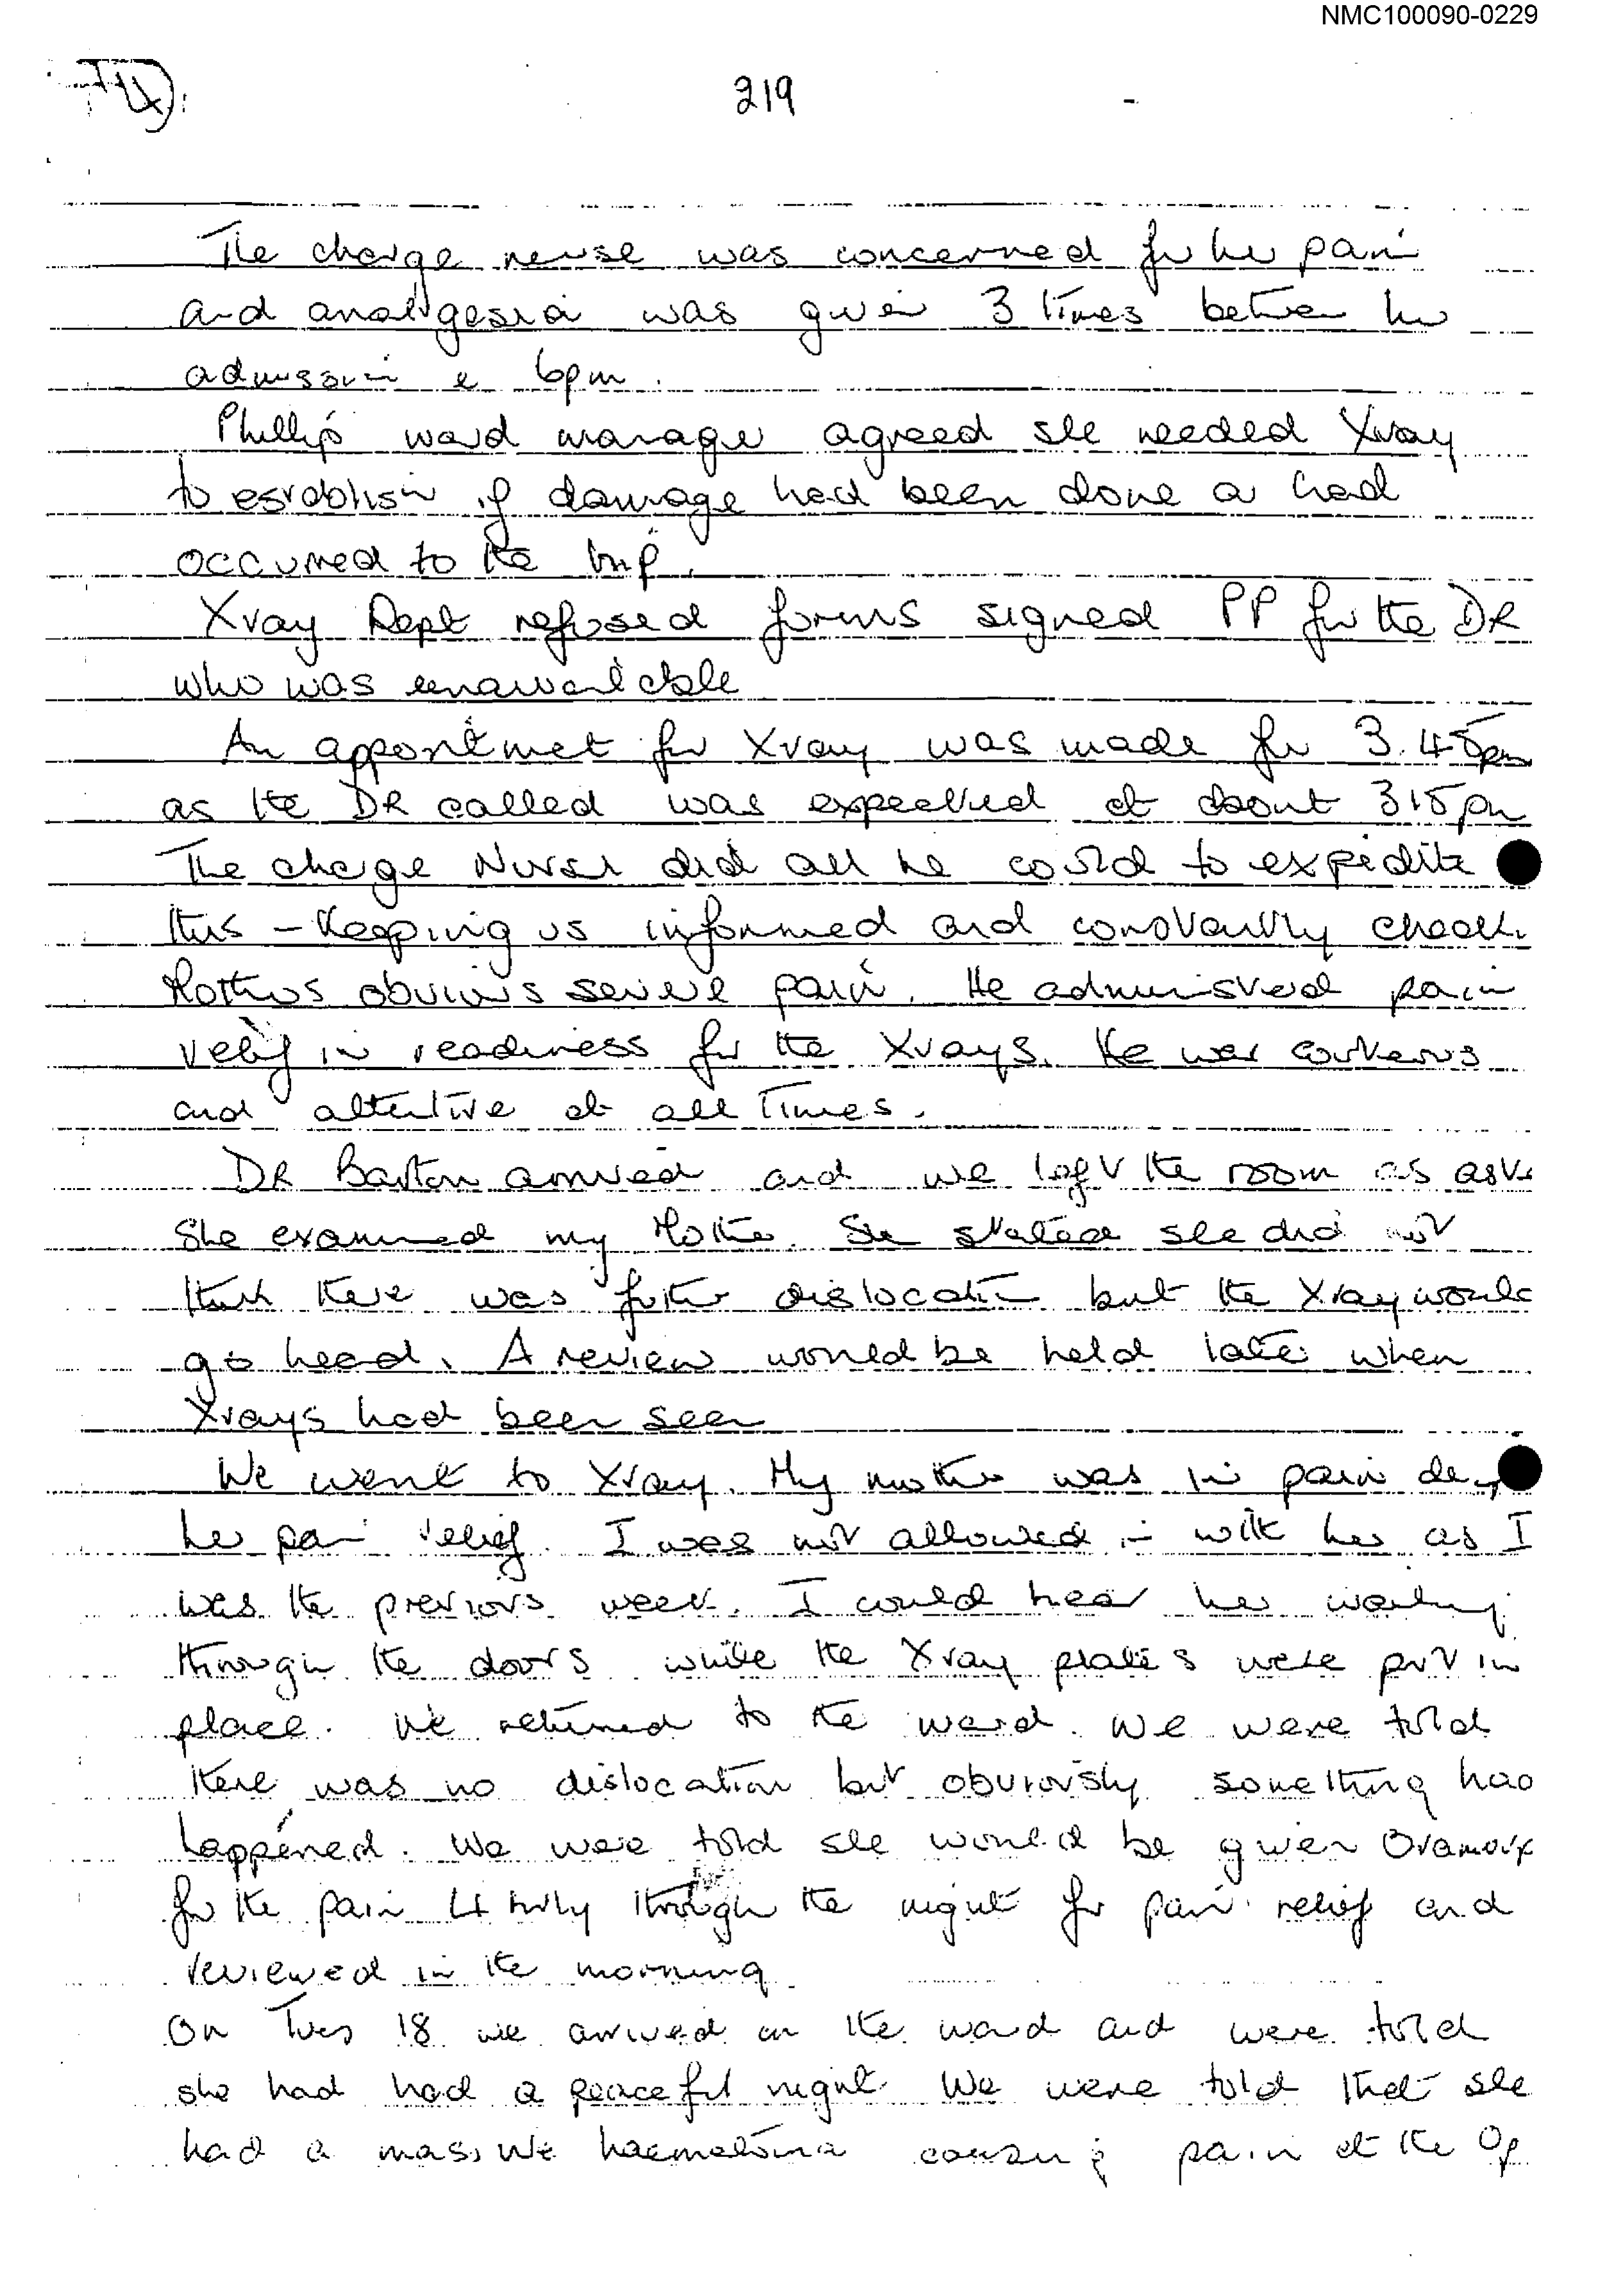 NMC100090-0229
219
The charge nurse was concerned for her pain
and analgesia was given 3 times between her
admission & 6pm.
Phillip ward manager agreed she needed Xray
to establish if damage had been done or had
occurred to the hip.
Xray Dept refused forms signed PP for the DR
who was unavailable
An appointmet for Xray was made for 3.45pm
as the DR called was expected at about 315pm
The charge Nurse did all he could to expedite
this – keeping us informed and constantly check
Mothers obvious severe pain. He administered pain
relief in readiness for the Xrays. He was courteous
and attentive at all times.
DR Barton arrived and we left the room as ask
She examined my Mother. She stated she did not
think there was further dislocation but the Xray would
go head. A review would be held later when
Xrays had been seen
We went to Xray. My mother was in pain
her pain relief. I was not allowed in with her as I
was the previous week. I could hear her wailing
through the doors while the Xray plates were put in
place. We returned to the ward. We were told
there was no dislocation but obviously something had
happened. We were told she would be given Oramorp
for the pain 4 hrly through the night for pain relief and
reviewed in the morning
On Tues 18 we arrived on the ward and were told
she had had a peaceful night. We were told that she
had a massive haematoma causing pain at the Op